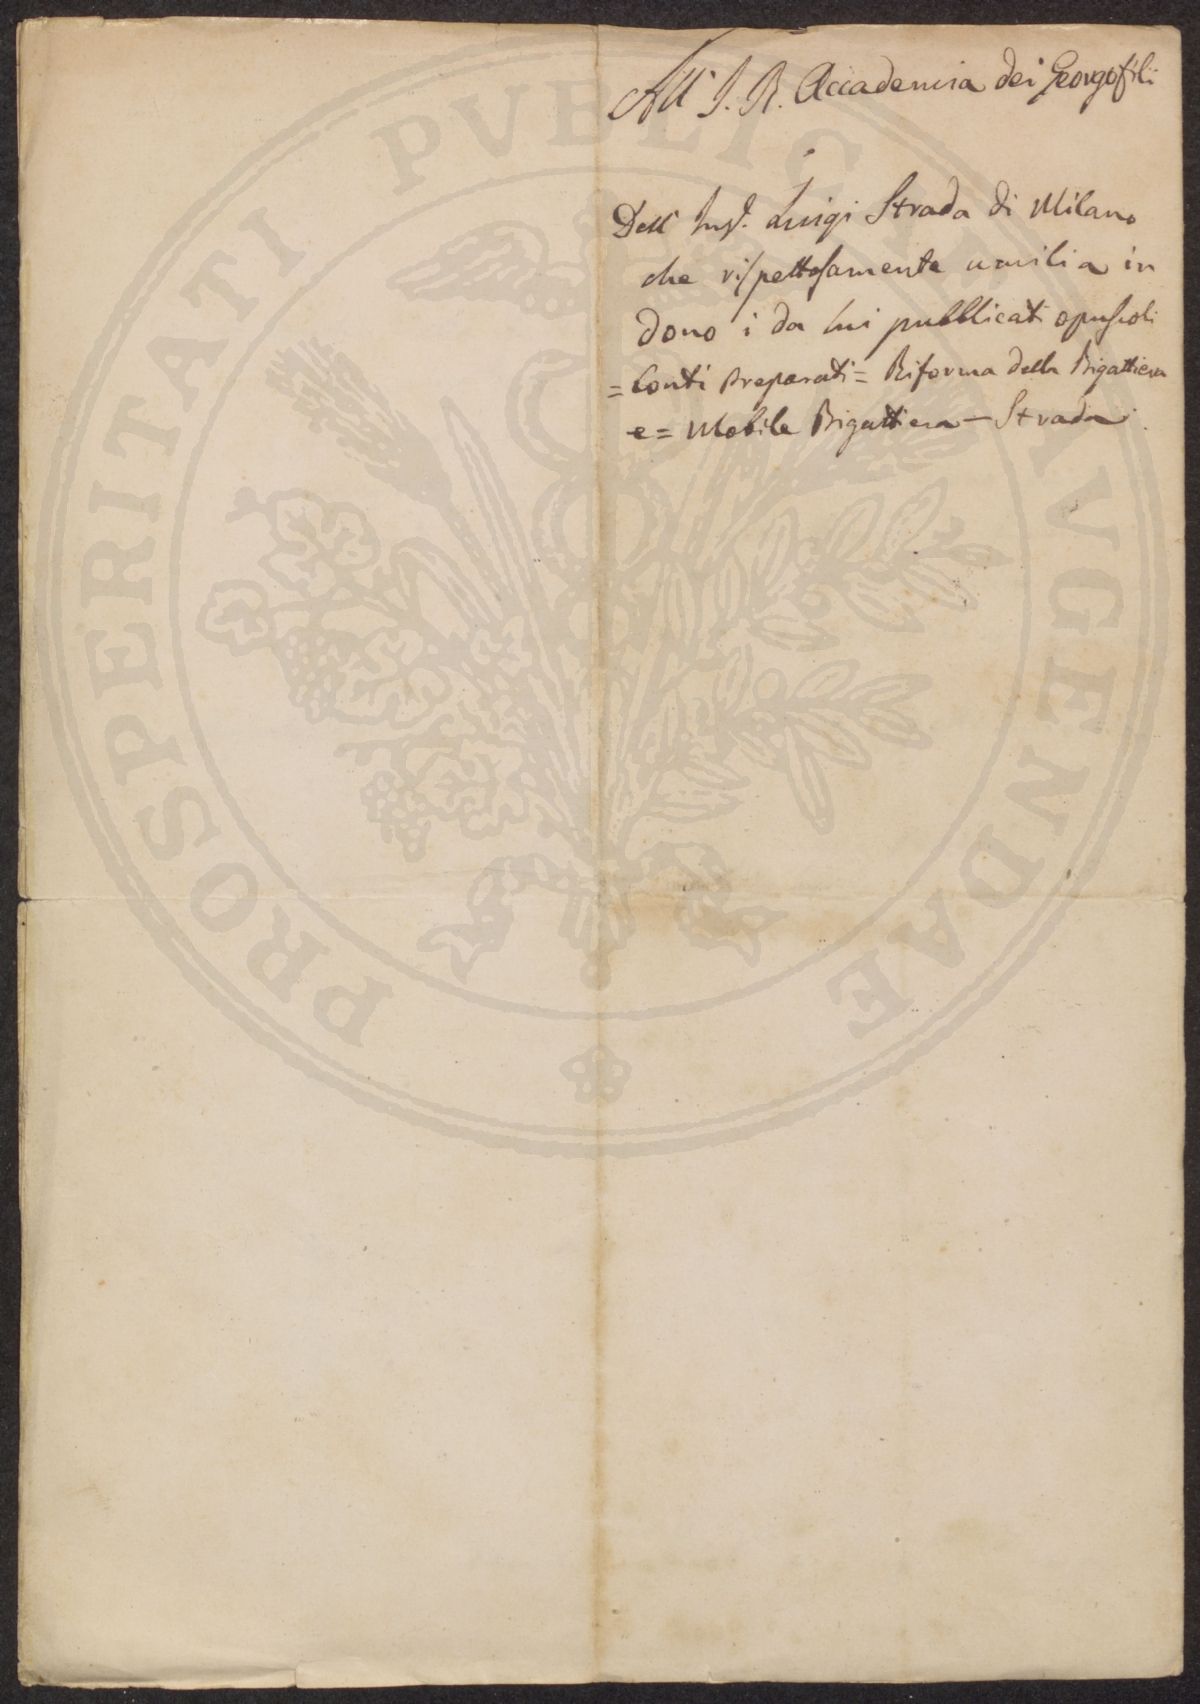 All' I. R. Accademia dei Georgofili
Dell' Ing.r Luigi Strada di Milano
che rispettosamente umilia in
dono i da lui pubblicati opuscoli
= Conti preparati = Riforma della Bigattiera
e = Mobile Bigattiera – Strada.
PROSPERITATI PVBLICAE AVGENDAE